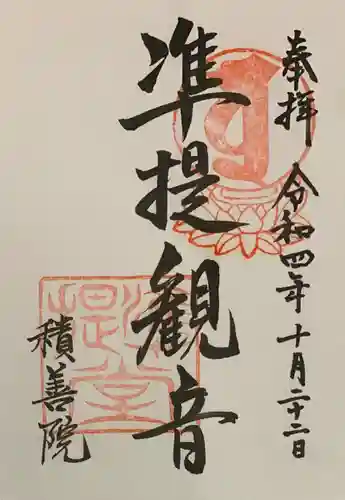 奉拝 令和四年十月二十二日
準提観音
積善院